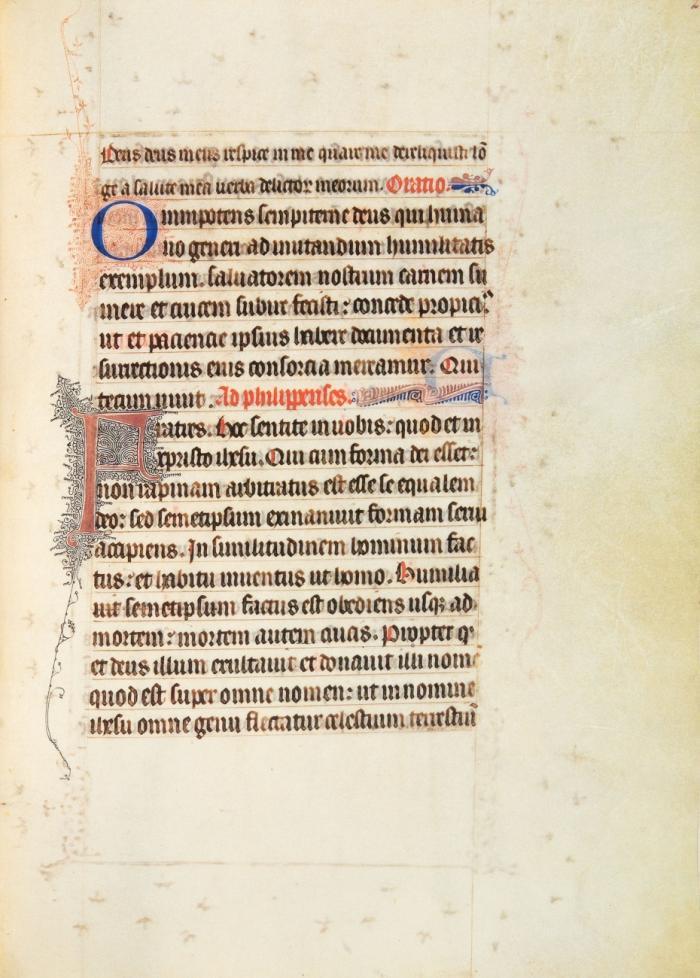 Deus deus meus respice in me quare me dereliquisti lō
ge a salute mea uerba delictor meorum. Oratio.
Omnipotens sempiterne deus qui huma
no generi ad imitandum humilitatis
exemplum. saluatorem nostrum carnem su
mere et crucem subire fecisti: concede propici⁹.
ut et paciencie ipsius habere documenta et re
surrectionis eius consorcia mereamur. Qui
tecum uiuit. Ad philippenses.
Fratres. Hoc sentite in uobis: quod et in
xpristo ihesu. Qui cum forma dei esset:
non rapinam arbitratus est esse se equalem
deo: sed semetipsum exinaniuit formam serui
accipiens. In similitudinem hominum fac
tus: et habitu inuentus ut homo. Humilia
uit semetipsum factus est obediens usqꝫ ad
mortem: mortem autem crucis. Propter q
et deus illum exultauit et donauit illi nomē
quod est super omne nomen: ut in nomine
ihesu omne genu flectatur celestium terrestriū